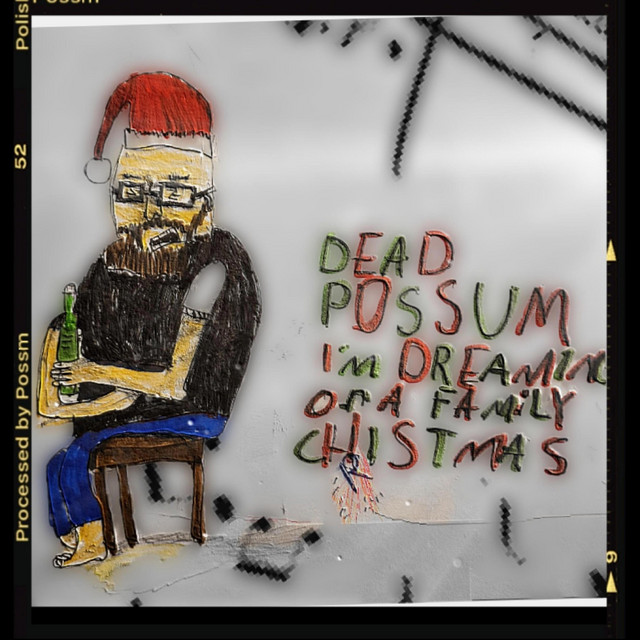 Polish Possm
52
Processed by Possm
DEAD
POSSUM
I'm DREAMIN
OF A FAMiLY
CHISTMAS
R
9